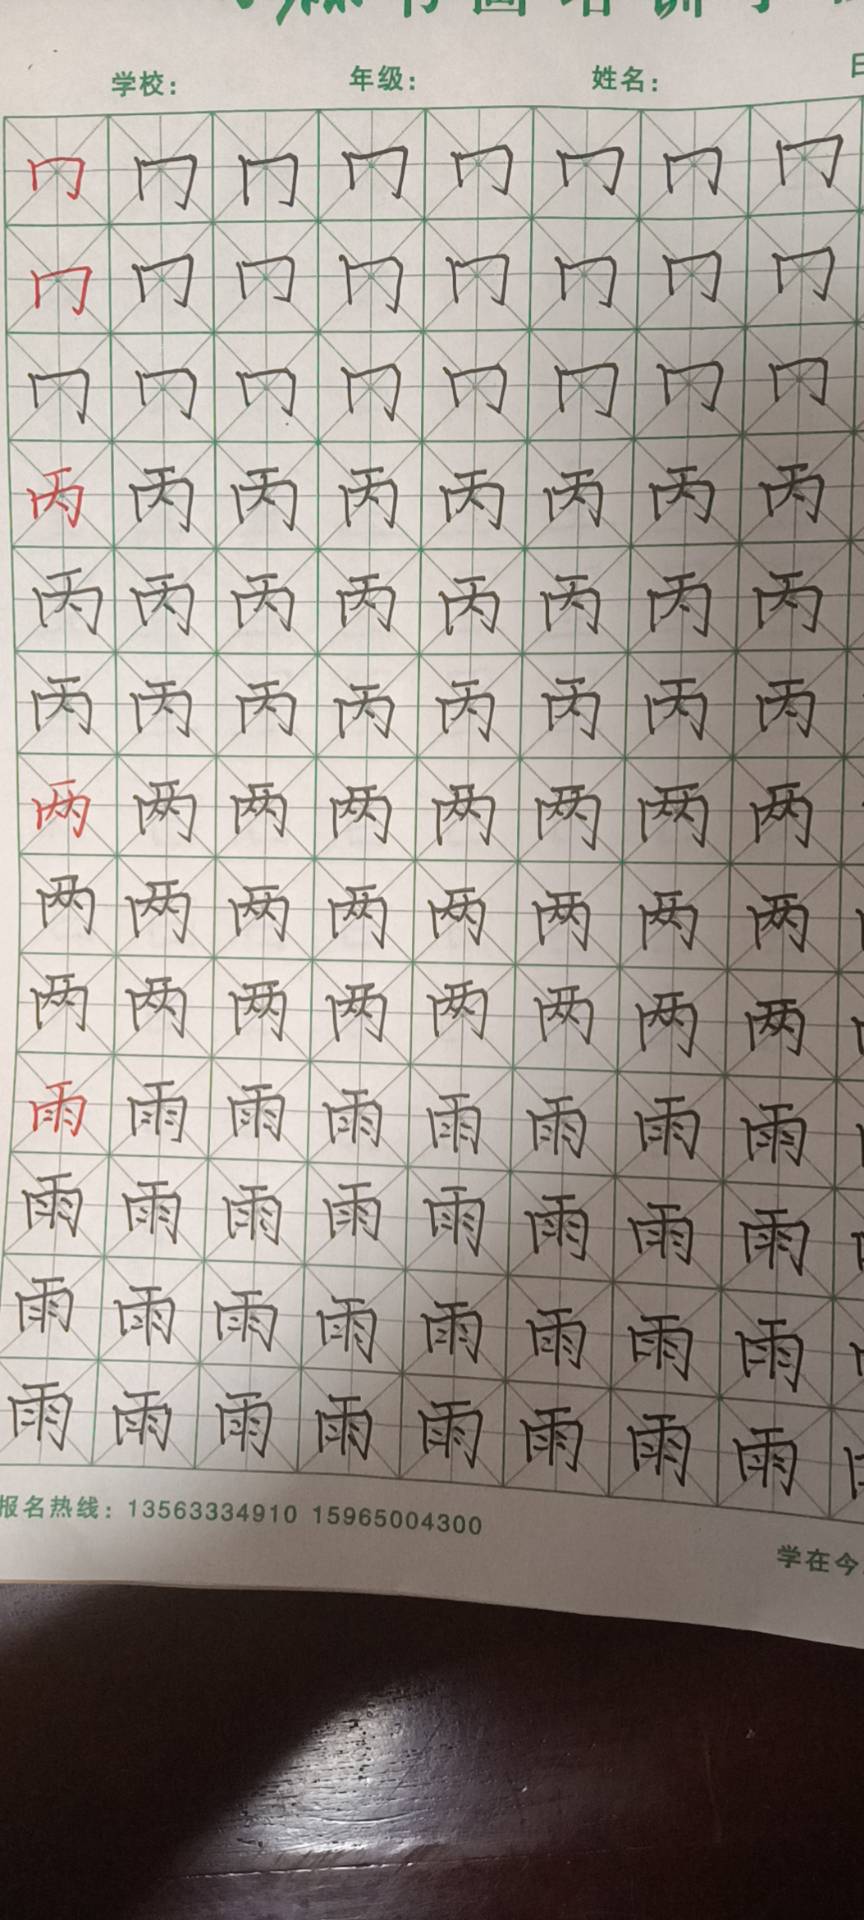 书画培训学
学校： 年级： 姓名： 日
冂冂冂冂冂冂冂冂
冂冂冂冂冂冂冂冂
冂冂冂冂冂冂冂冂
丙丙丙丙丙丙丙丙
丙丙丙丙丙丙丙丙
丙丙丙丙丙丙丙丙
两两两两两两两两
两两两两两两两两
两两两两两两两两
雨雨雨雨雨雨雨雨
雨雨雨雨雨雨雨雨
雨雨雨雨雨雨雨雨
雨雨雨雨雨雨雨雨
报名热线：13563334910 15965004300
学在今